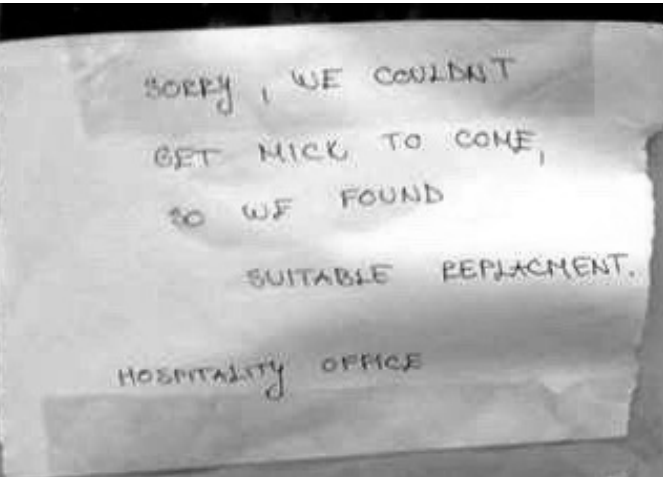 SORRY, WE COULDNT
GET MICK TO COME,
SO WE FOUND
SUITABLE REPLACMENT.
HOSPITALITY OFFICE